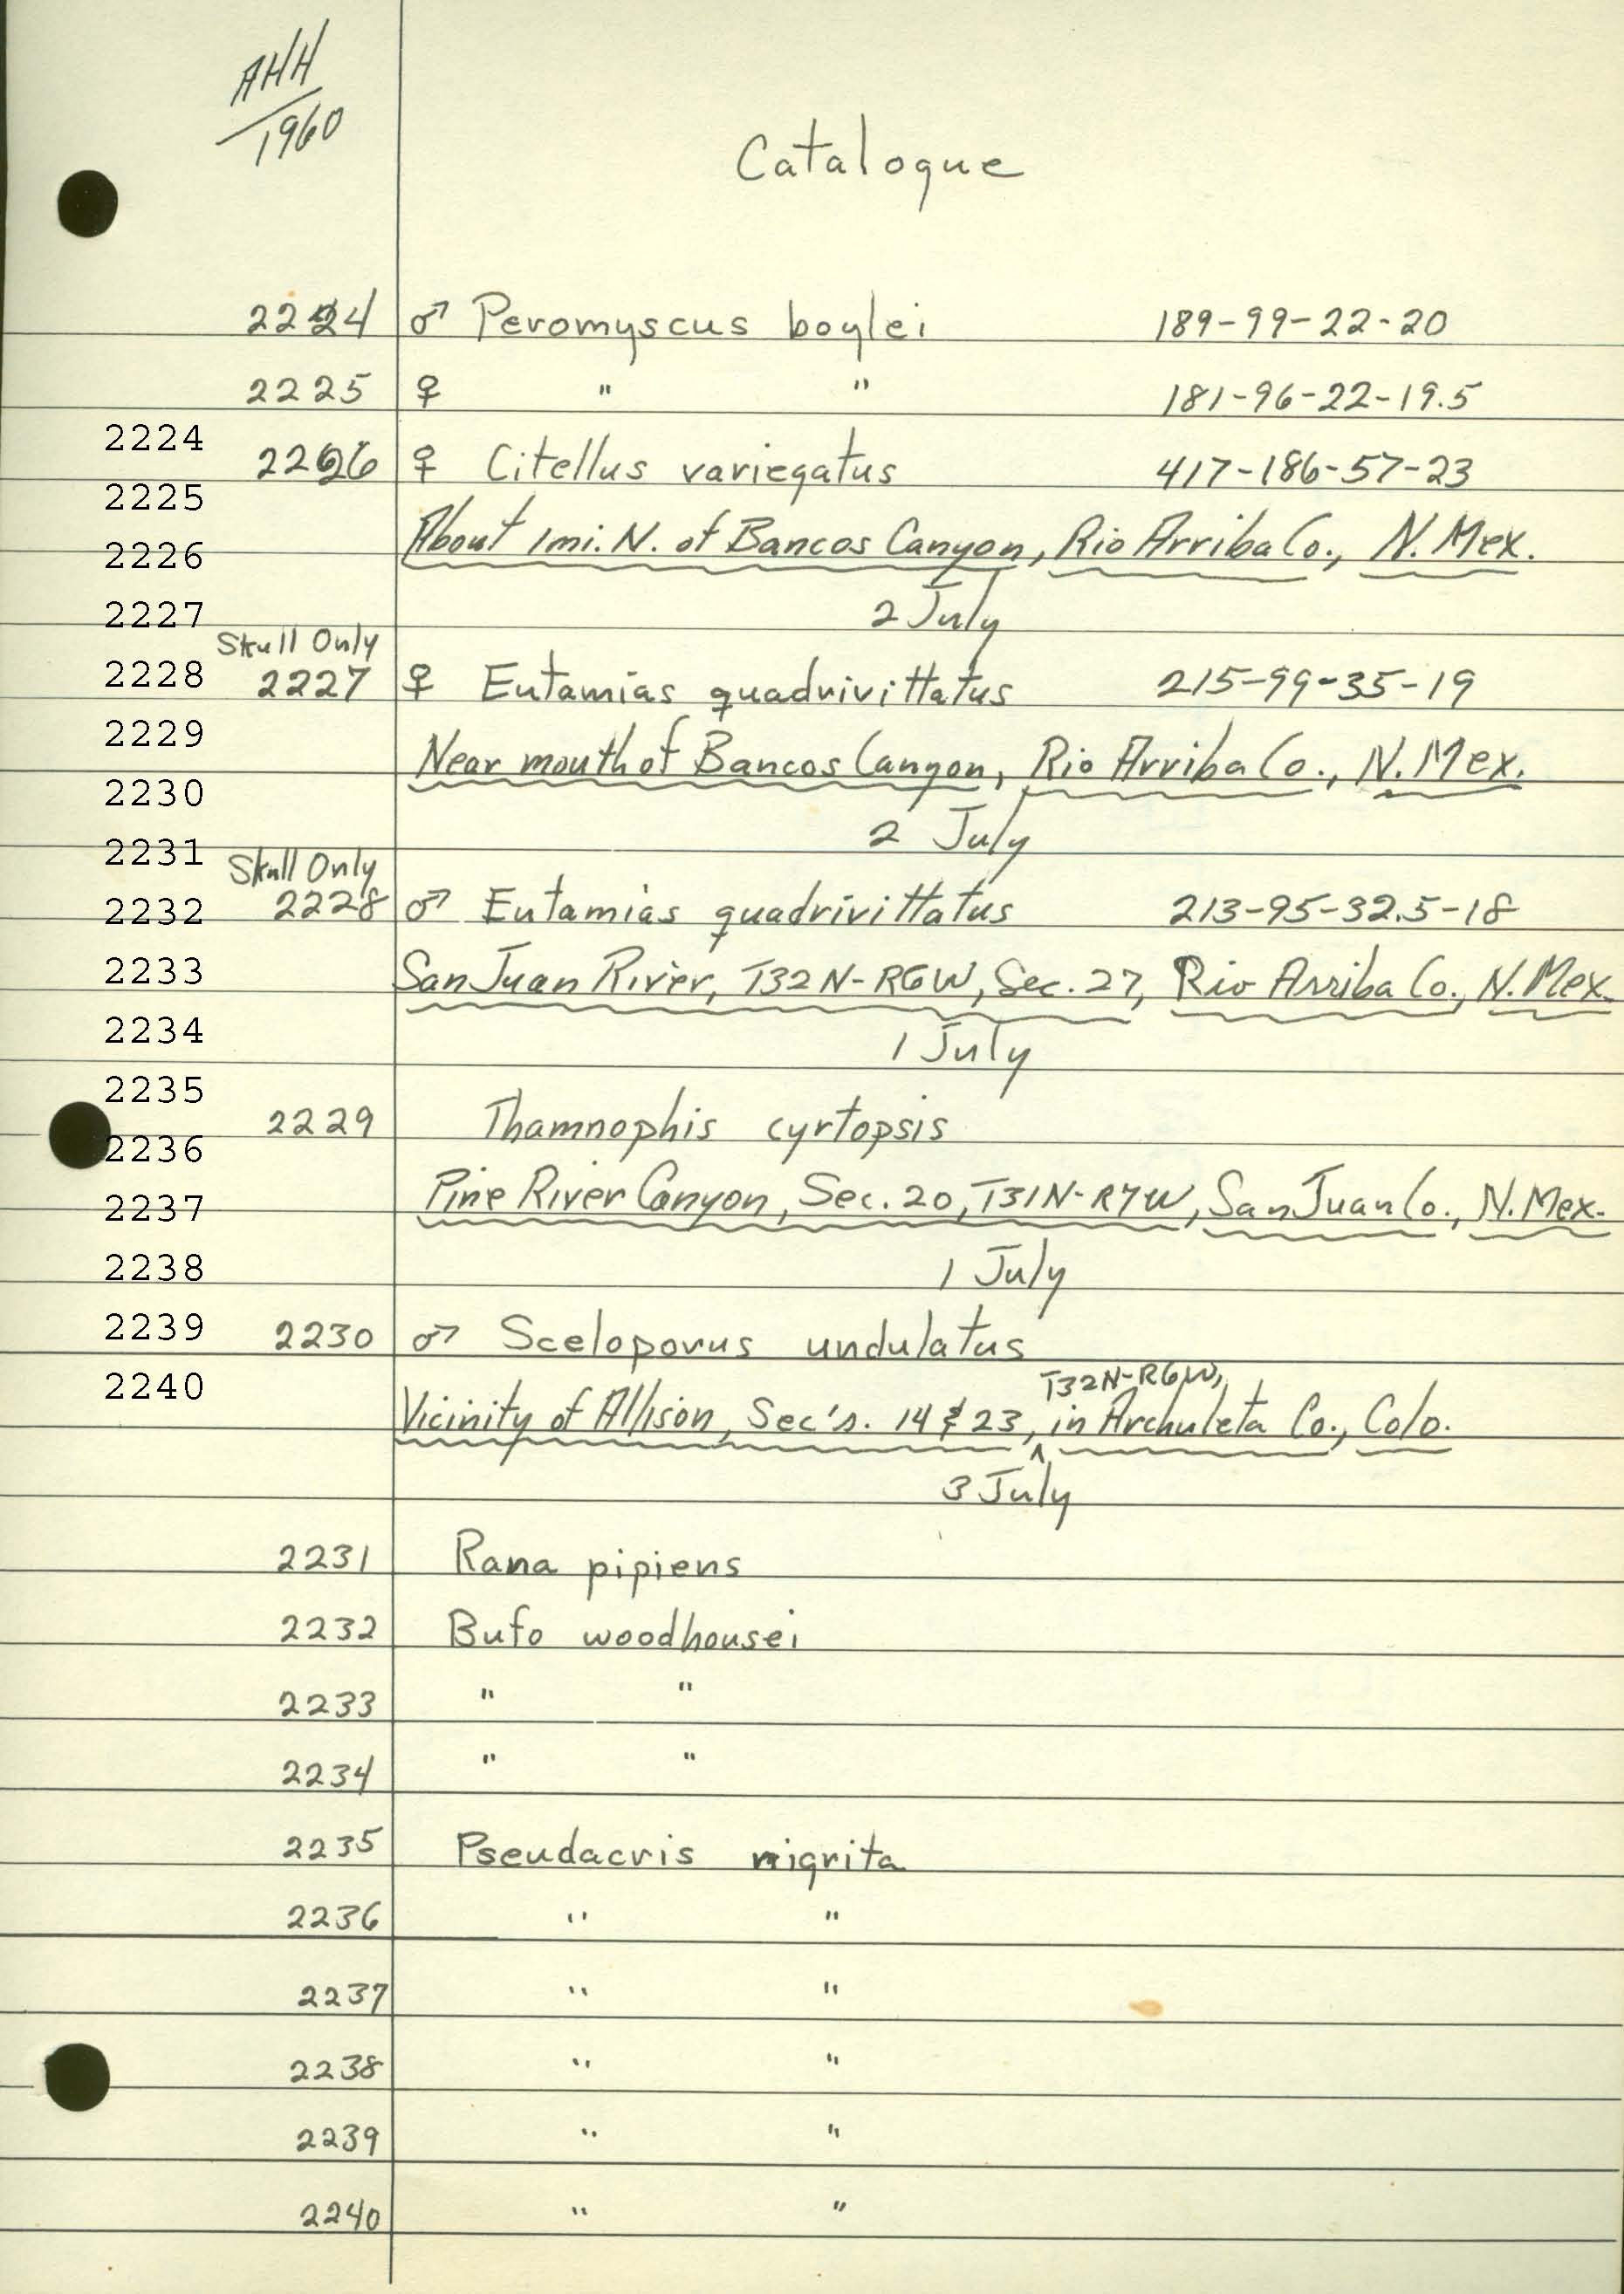 AHH
1960
Catalogue
2224 ♂ Peromyscus boylei 189-99-22-20
2225 ♀ " " 181-96-22-19.5
2224
2226 ♀ Citellus variegatus 417-186-57-23
2225
About 1mi. N. of Bancos Canyon, Rio Arriba Co., N. Mex.
2226
2 July
2227
Skull Only
2228
2227 ♀ Eutamias quadrivittatus 215-99-35-19
2229
Near mouth of Bancos Canyon, Rio Arriba Co., N. Mex.
2230
2 July
2231
Skull Only
2232
2228 ♂ Eutamias quadrivittatus 213-95-32.5-18
2233
San Juan River, T32N-R6W, Sec. 27, Rio Arriba Co., N. Mex.
2234
1 July
2235
2229 Thamnophis cyrtopsis
2236
Pine River Canyon, Sec. 20, T31N-R7W, San Juan Co., N. Mex.
2237
2238
1 July
2239
2230 ♂ Sceloporus undulatus
2240
T32N-R6W,
Vicinity of Allison, Sec's. 14 & 23, in Archuleta Co., Colo.
3 July
2231 Rana pipiens
2232 Bufo woodhousei
2233 " "
2234 " "
2235 Pseudacris nigrita
2236 " "
2237 " "
2238 " "
2239 " "
2240 " "